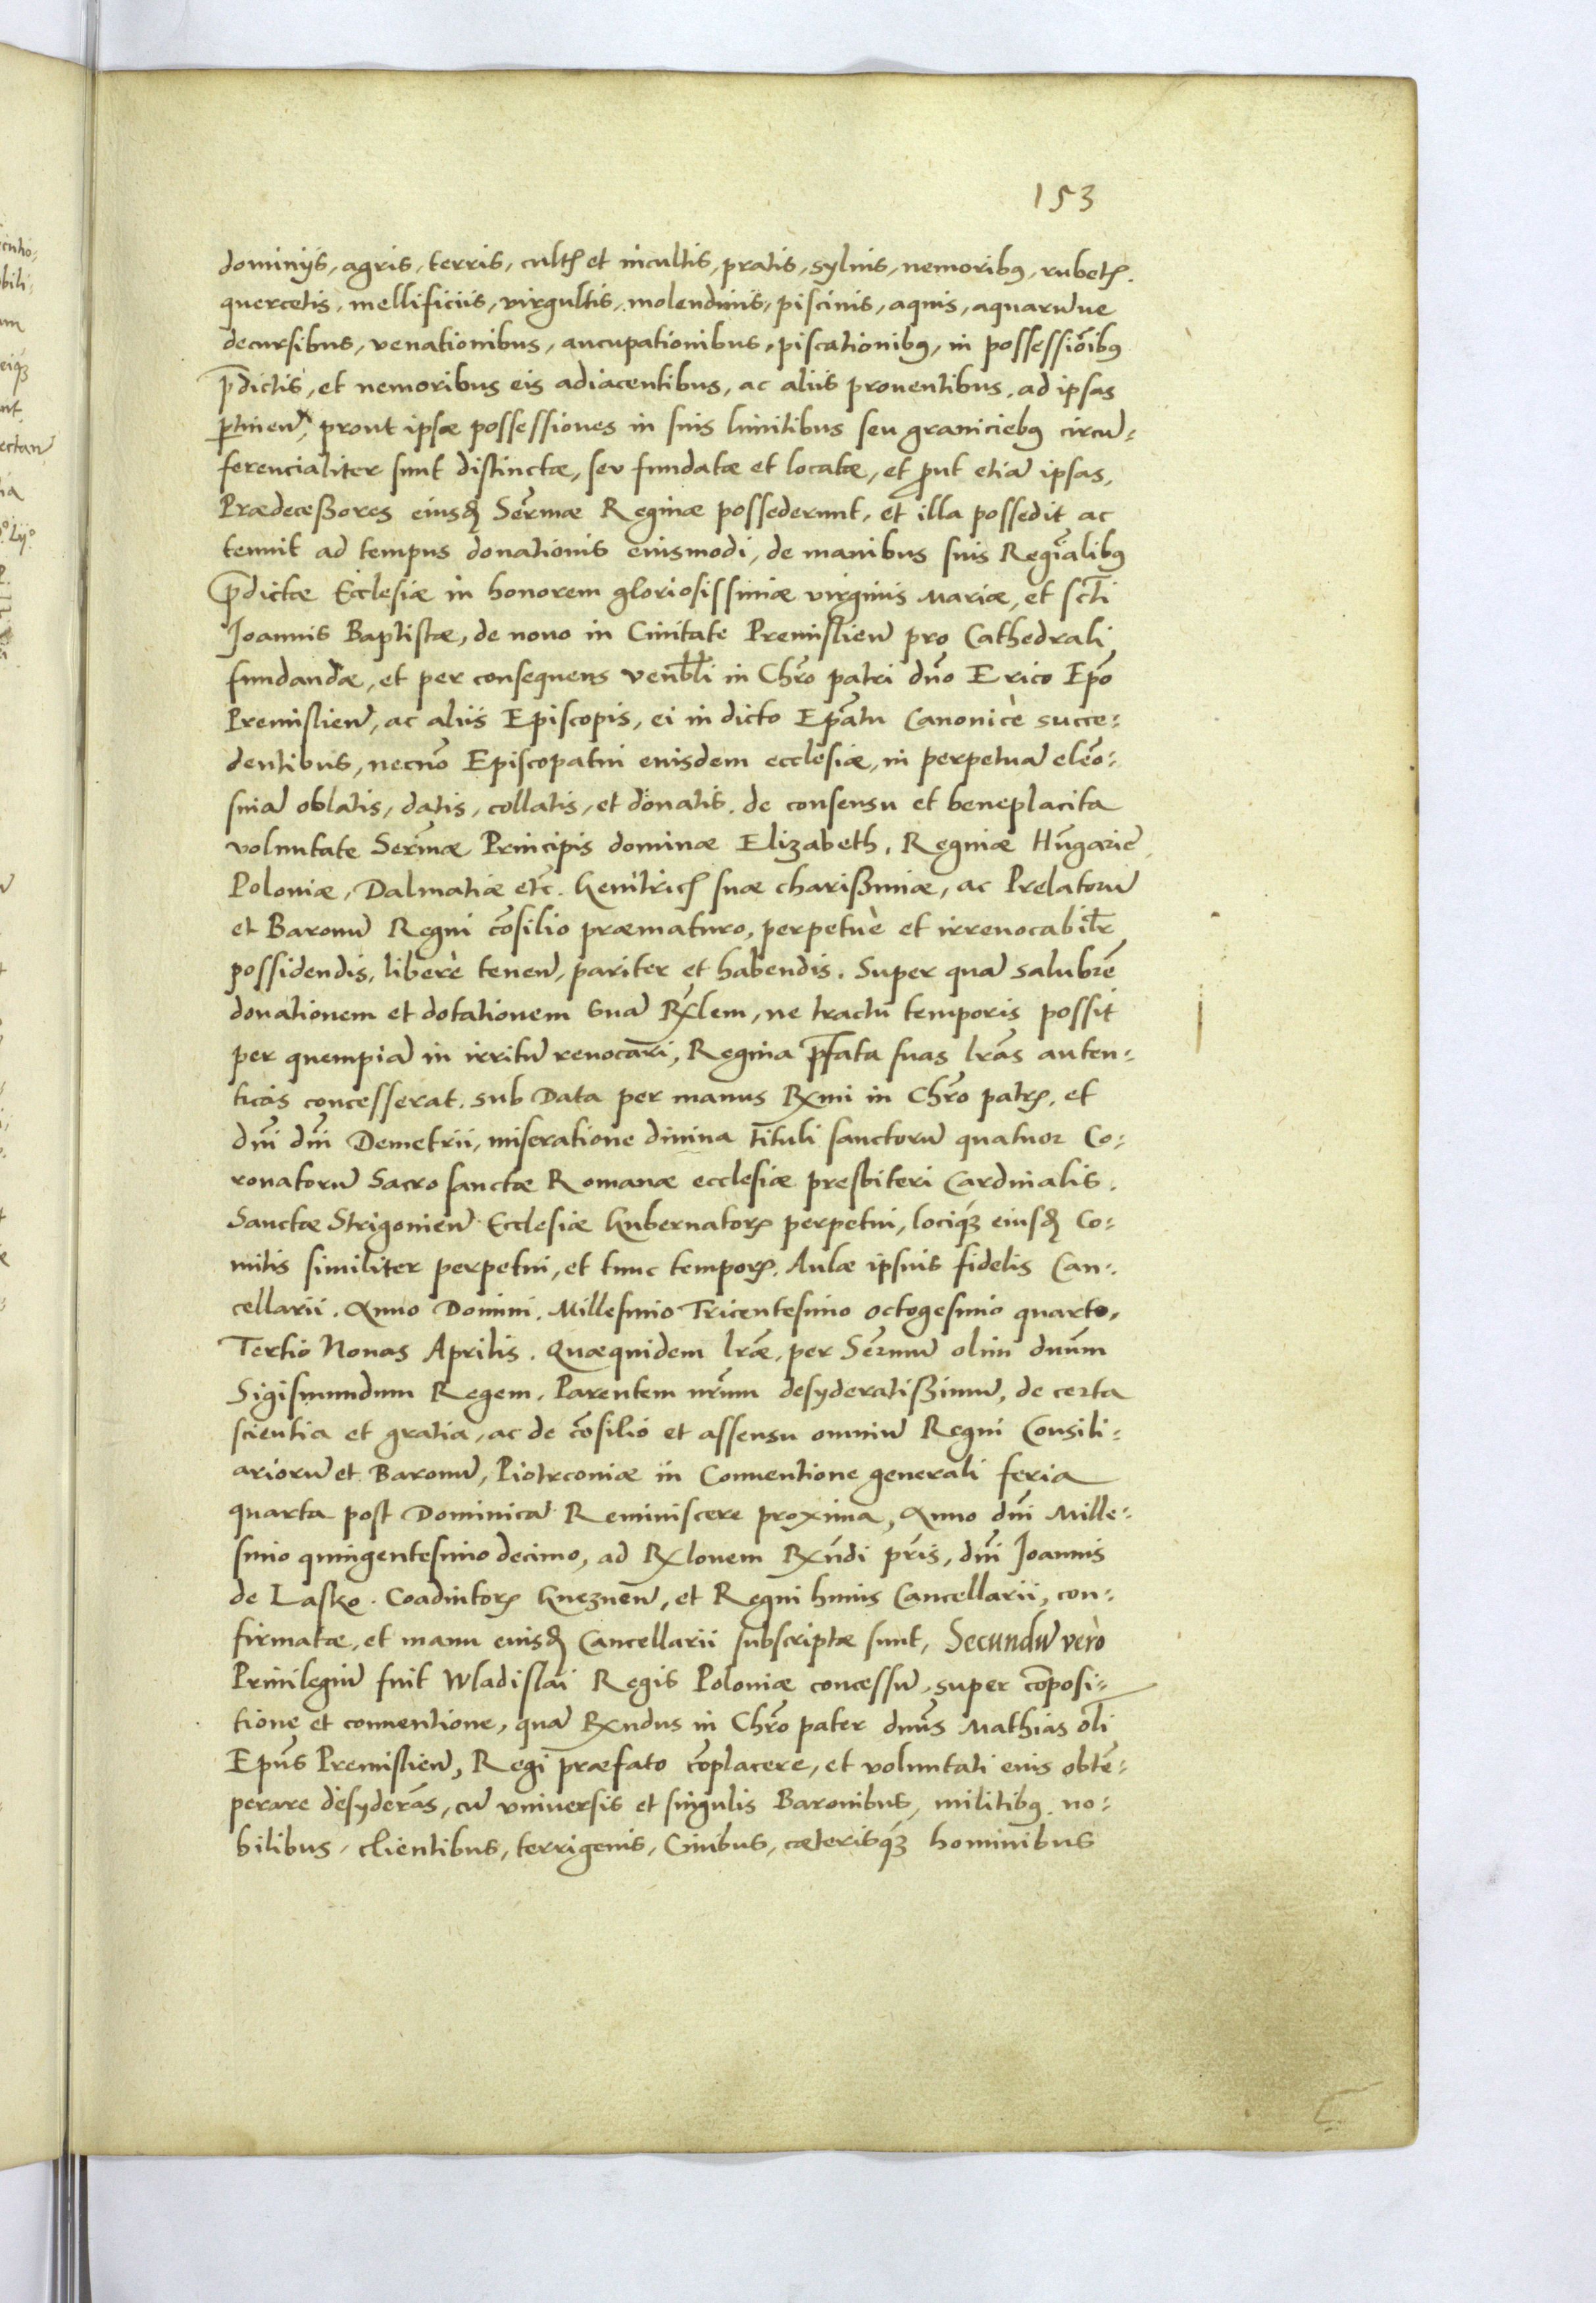 153
dominijs, agris, terris, cultꝭ et incultis, pratis, syluis, nemoribꝰ, rubetꝭ.
quercetis, mellificiis, virgultis, molendinis, piscinis, aquis, aquarūue
decursibus, venationibus, aucupationibus, piscationibꝰ, in possessiōibꝰ
p̄dictis, et nemoribus eis adiacentibus, ac aliis prouentibus, ad ipsas
ꝑtinen̄, prout ipsæ possessiones in suis limitibus seu graniciebꝰ circū-
ferencialiter sunt distinctæ, seu fundatæ et locatæ, et ꝓut etiā ipsas,
Prædeceßores eiusdꝫ Ser̄mæ Reginæ possederunt, et illa possedit ac
tenuit ad tempus donationis euismodi, de manibus suis Regīalibꝰ
p̄dictæ Ecclesiæ in honorem gloriosissimæ virginis Mariæ, et sc̄ti
Joannis Baptistæ, de nouo in Ciuitate Premislien̄ pro Cathedrali
fundandæ, et per consequens ven̄bli in Chr̄o patri dn̄o Erico Ep̄o
Premislien̄, ac aliis Episcopis, ei in dicto Ep̄atu Canonicè succe-
dentibus, necnō Episcopatui euisdem ecclesiæ, in perpetuā eleō-
sinā oblatis, datis, collatis, et donatis, de consensu et beneplacita
voluntate Ser̄mæ Principis dominæ Elizabeth, Reginæ Hūgarie,
Poloniæ, Dalmatiæ et̄c. Genitricꝭ suæ charißimæ, ac Prelatorū
et Baronū Regni cōsilio præmaturo, perpetuè et irreuocabil̄r
possidendis, liberè tenen̄, pariter et habendis. Super quā salubrē
donationem et dotationem suā Rx̄lem, ne tractu temporis possit
per quempiā in irritū reuocari, Regina p̄fata suas lr̄as auten-
ticas concesserat, sub Data per manus Rx̄mi in Chr̄o patrꝭ, et
dn̄i dn̄i Demetrii, miseratione diuina Tituli sanctorū quatuor Co-
ronatorū Sacro sanctæ Romanæ ecclesiæ presbiteri Cardinalis.
Sanctæ Strigonien̄ Ecclesiæ Gubernatorꝭ perpetui, lociqꝫ eiusdꝫ Co-
mitis similiter perpetui, et tunc temporꝭ, Aulæ ipsuis fidelis Can-
cellarii. Anno Domini. Millesimo Tricentesimo octogesimo quarto,
Tertio Nonas Aprilis. Quæquidem lr̄æ, per Ser̄mū olim dnūm
Sigismundum Regem, Parentem nr̄um desyderatißimū, de certa
scientia et gratia, ac de cōsilio et assensu omniū Regni Consili-
ariorū et Baronū, Piotrconiæ in Conuentione generali feria
quarta post Dominicā Reminiscere proxima, Anno dn̄i Mille-
simo quingentesimo decimo, ad Rx̄lonem Rx̄ndi pr̄is, dn̄i Joannis
de Lasko. Coadiutorꝭ Gneznen̄, et Regni huius Cancellarii, con-
firmatæ, et manu euisdꝫ Cancellarii subscriptæ sunt, Secundū verò
Priuilegiū fuit Wladislai Regis Poloniæ concessū, super cōposi-
tione et conuentione, quā Rx̄ndus in Chr̄o pater dn̄us Mathias ol̄i
Ep̄us Premislien̄, Regi præfato cōplacere, et voluntati euis obtē-
perare desyderās, cū vniuersis et singulis Baronibus, militibꝰ, no-
bilibus, clientibus, terrigenis, Ciuibus, cæterisqꝫ hominibus